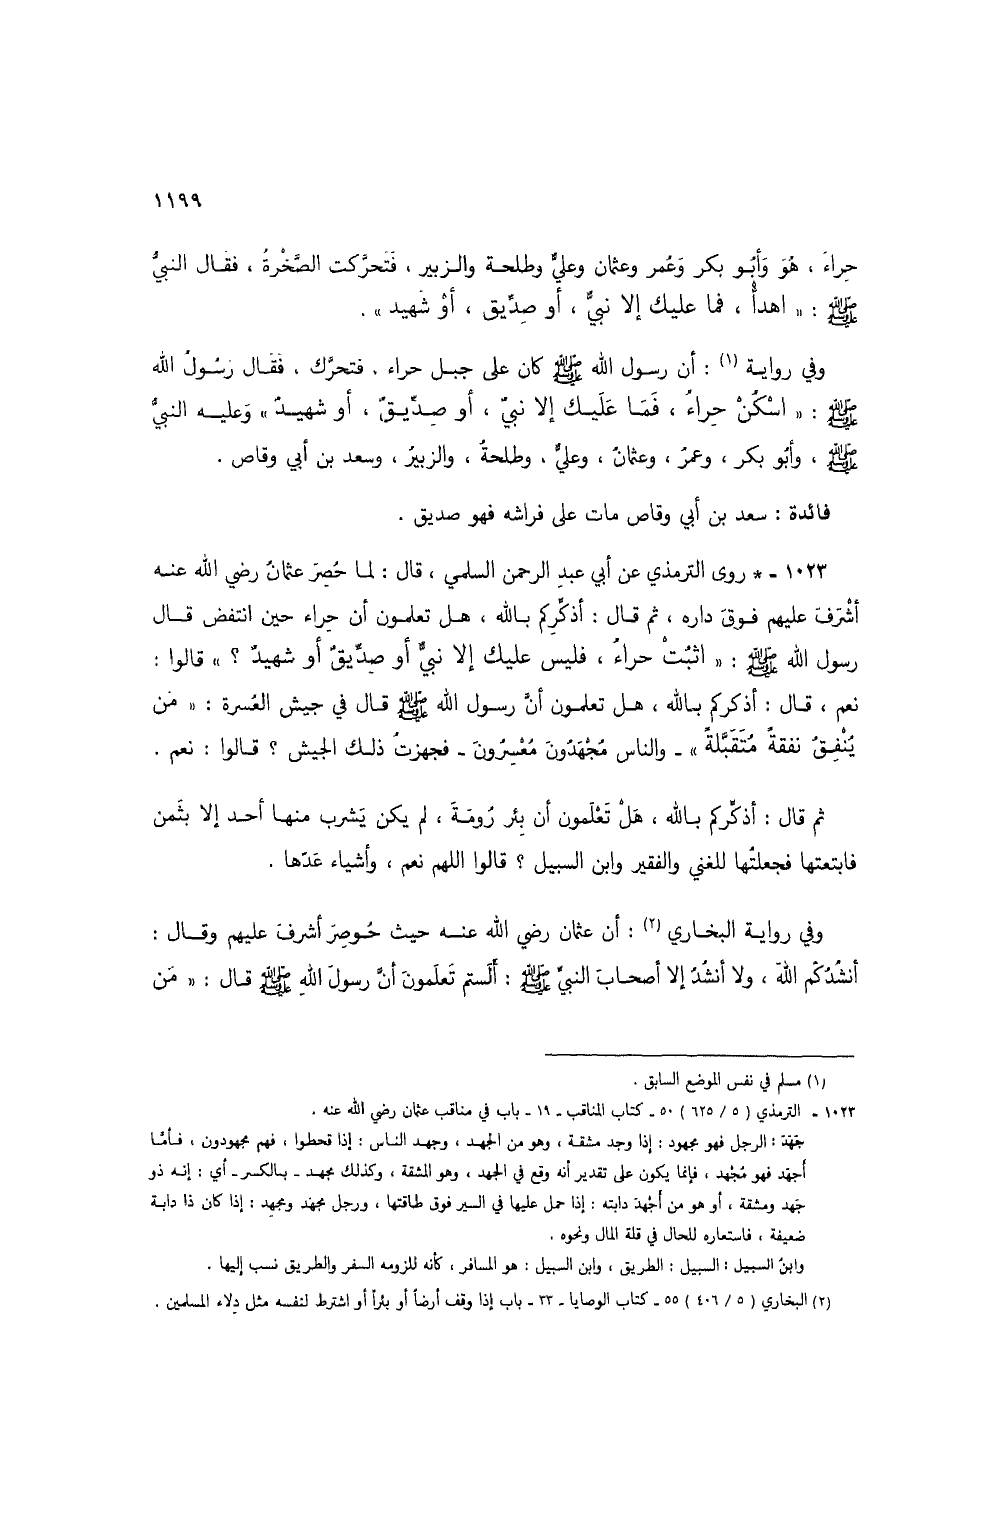 ١١٩٩
حِراءَ ، هُوَ وَأَبُو بكر وَعُمر وعثمان وعليٌّ وطلحة والزبير ، فَتَحرَّكت الصَّخْرةُ ، فقال النبيُّ
ﷺ : « اهدأْ ، فما عليك إلا نبيٌّ ، أو صِدِّيق ، أوْ شَهيد » .
وفي رواية (١) : أن رسول الله ﷺ كان على جبل حراء ، فتحرَّك ، فَقَال رَسُولُ الله
ﷺ : « اسْكُنْ حِراءُ ، فَمَا عَلَيك إلا نبيٌّ ، أو صِدِّيقٌ ، أو شهيدٌ » وَعليه النبيُّ
ﷺ ، وأبُو بكر ، وعمرُ ، وعثمانُ ، وعليٌّ ، وطلحةُ ، والزبيرُ ، وسعد بن أبي وقاص .
فائدة : سعد بن أبي وقاص مات على فراشه فهو صديق .
١٠٢٣ ـ * روى الترمذي عن أبي عبدِ الرحمن السلمي ، قال : لما حُصِرَ عثمانُ رضي الله عنه
أشْرَفَ عليهم فوقَ داره ، ثم قال : أذكِّركم بالله ، هل تعلمون أن حِراء حين انتفض قال
رسول الله ﷺ : « اثبُتْ حراءُ ، فليس عليك إلا نبيٌّ أو صِدِّيقٌ أو شهيدٌ ؟ » قالوا :
نعم ، قال : أذكركم بالله ، هل تعلمون أنَّ رسول الله ﷺ قال في جيش العُسرة : « مَن
يُنْفِقُ نفقةً مُتَقَبَّلةً » ـ والناس مُجْهَدُونَ مُعْسِرُونَ ـ فجهزتُ ذلك الجيش ؟ قالوا : نعم .
ثم قال : أذكِّركم بالله ، هَلْ تَعْلَمون أن بِئر رُومَةَ ، لم يكن يَشرب منها أحد إلا بثَمن
فابتعتها فجعلتُها للغني والفقير وابن السبيل ؟ قالوا اللهم نعم ، وأشياء عَدّها .
وفي رواية البخاري (٢) : أن عثمان رضي الله عنه حيث حُوصِرَ أشرفَ عليهم وقال :
أنشُدُكُم اللهَ ، ولا أنشُدُ إلا أصحابَ النبيِّ ﷺ : ألَستم تَعلَمونَ أنَّ رسولَ اللهِ ﷺ قال : « مَن
(١) مسلم في نفس الموضع السابق .
١٠٢٣ ـ الترمذي ( ٥ / ٦٢٥ ) ٥٠ ـ كتاب المناقب ـ ١٩ ـ باب في مناقب عثمان رضي الله عنه .
جَهَدَ : الرجل فهو مجهود : إذا وجد مشقة ، وهو من الجهد ، وجهد الناس : إذا قحطوا ، فهم مجهودون ، فأمَّا
أجهَد فهو مُجْهد ، فإنما يكون على تقدير أنه وقع في الجهد ، وهو المشقة ، وكذلك مجهد ـ بالكسر ـ أي : إنه ذو
جَهد ومشقة ، أو هو من أجْهدَ دابته : إذا حمل عليها في السير فوق طاقتها ، ورجل مجهَد ومجهِد : إذا كان ذا دابة
ضعيفة ، فاستعاره للحال في قلة المال ونحوه .
وابنُ السبيل : السبيل : الطريق ، وابن السبيل : هو المسافر ، كأنه للزومه السفر والطريق نسب إليها .
(٢) البخاري ( ٥ / ٤٠٦ ) ٥٥ ـ كتاب الوصايا ـ ٣٣ ـ باب إذا وقف أرضاً أو بئراً أو اشترط لنفسه مثل دِلاء المسلمين .